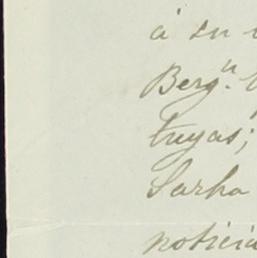 á su
Berg.n
tuyas;
Sarha
noticia